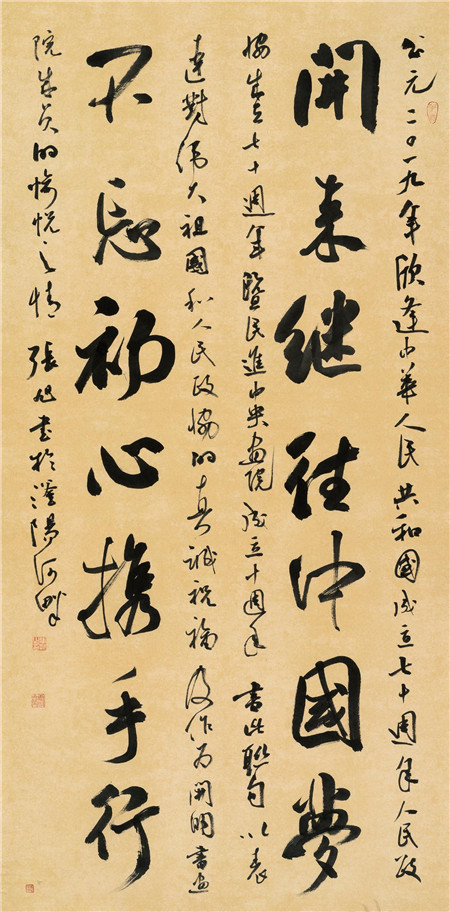 公元二〇一九年欣逢中華人民共和國成立七十週年人民政
開来继往中國夢
協成立七十週年暨民進中央画院成立十週年書此聯句以表
達對偉大祖國和人民政協的真誠祝福及作为開明書画
不忘初心携手行
院成员的愉悦之情張旭书於滏陽河畔